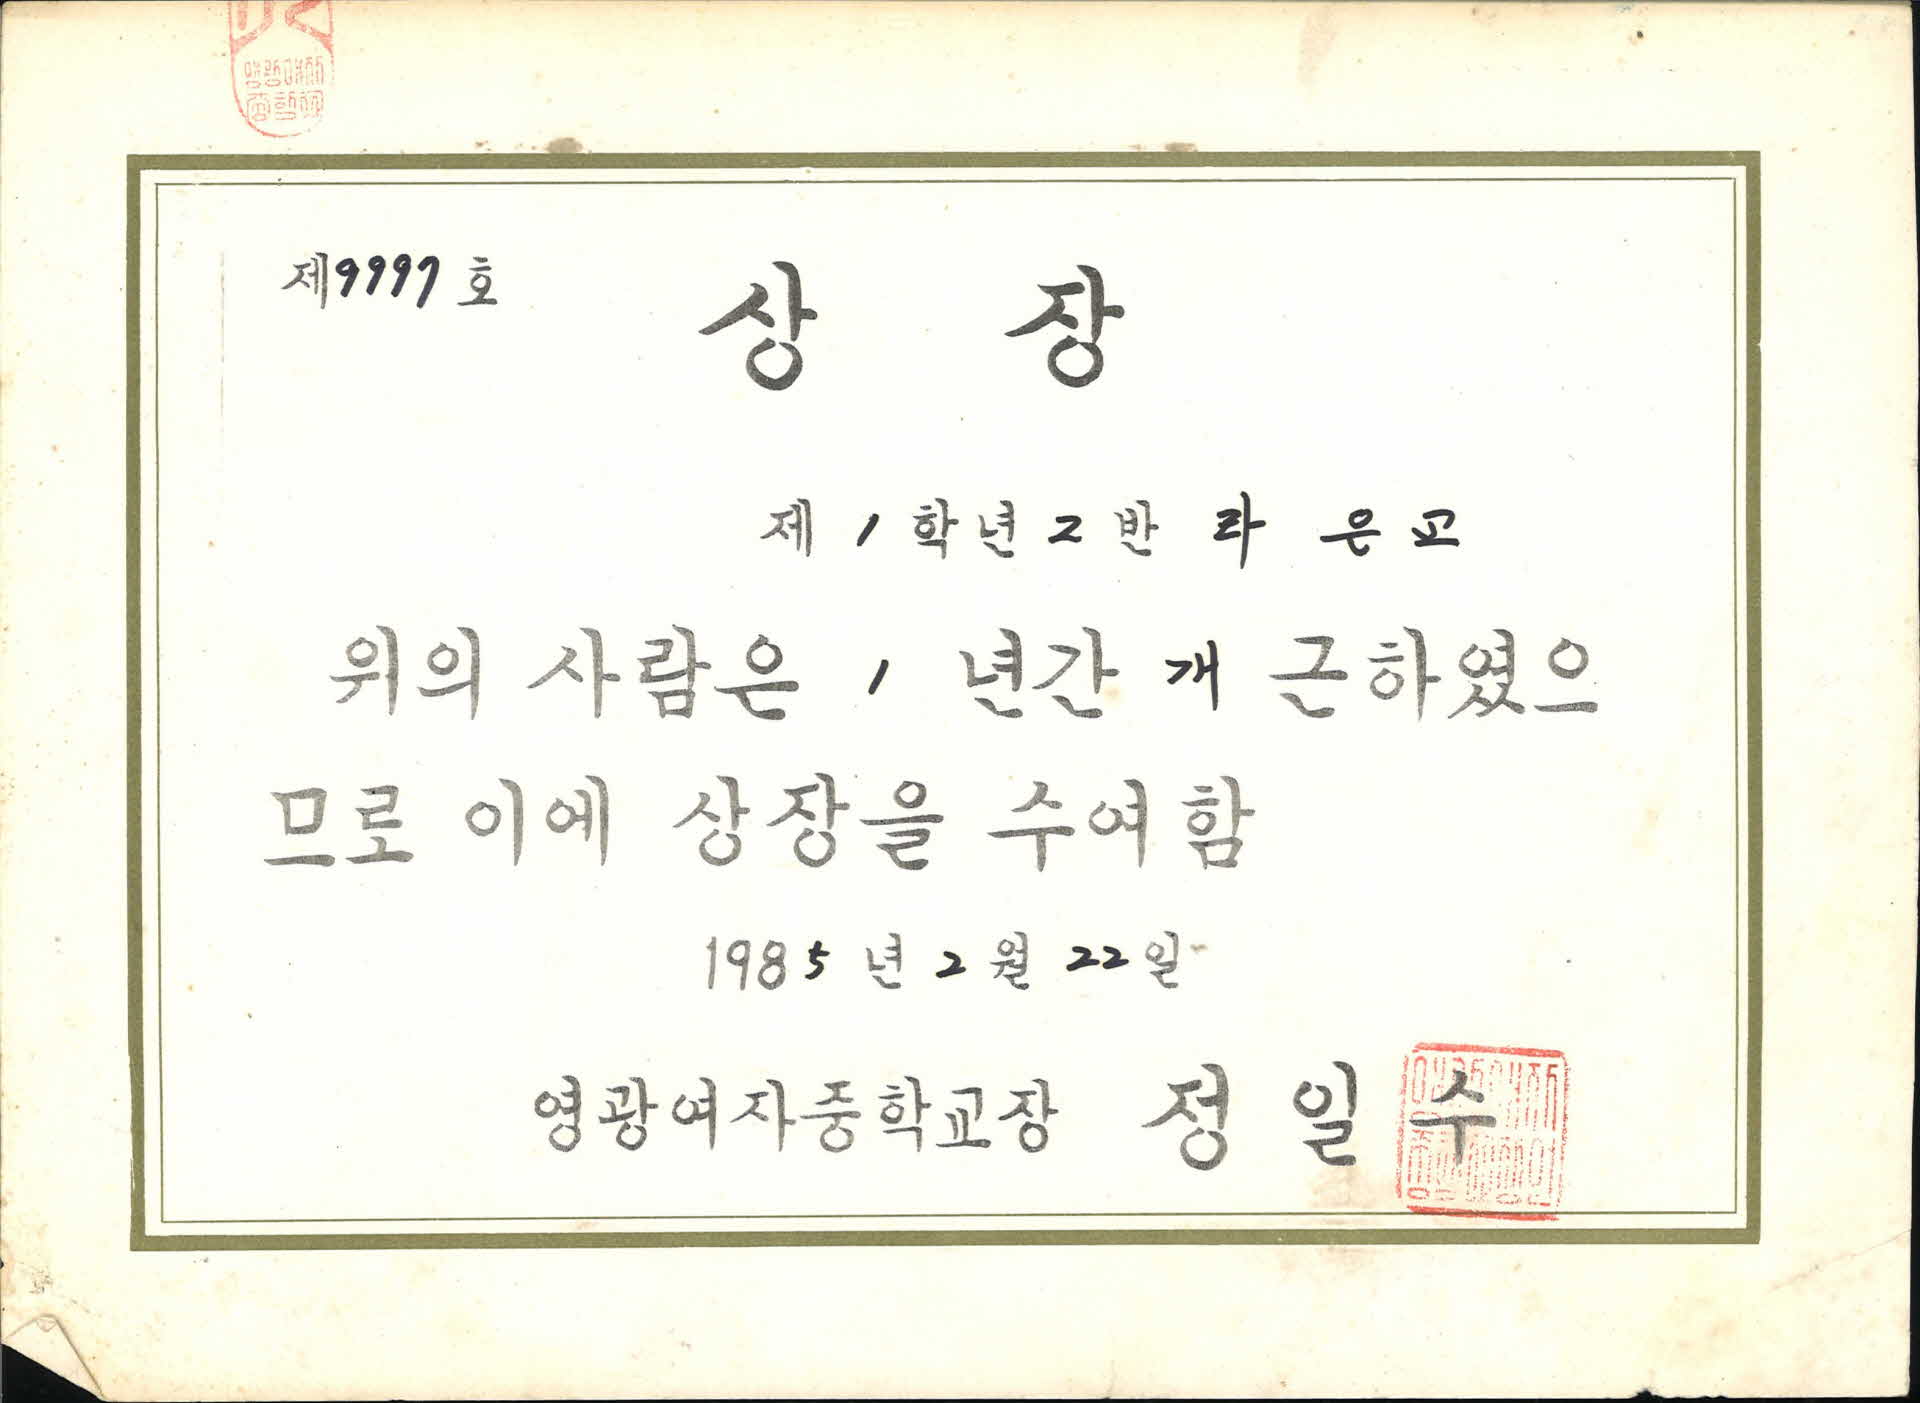 제9997호
상 장
제 1 학년 2 반 라 은교
위의 사람은 1 년간 개 근하였으
므로 이에 상장을 수여함
1985 년 2 월 22 일
영광여자중학교장 정 일 수